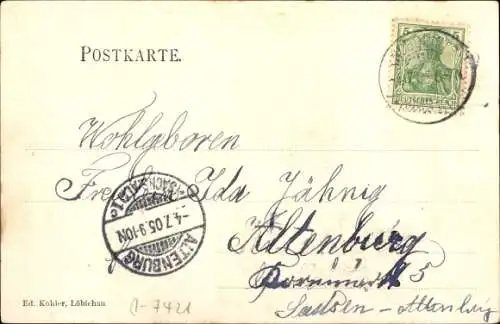 POSTKARTE.
5 5
DEUTSCHES REICH
Wohlgeboren
Frl. Ida Jähnig
Altenburg
5
Sachsen-Altenburg
ALTENBURG
-4.7.05.9-10N
Ed. Kohler, Löbichau
A-7421